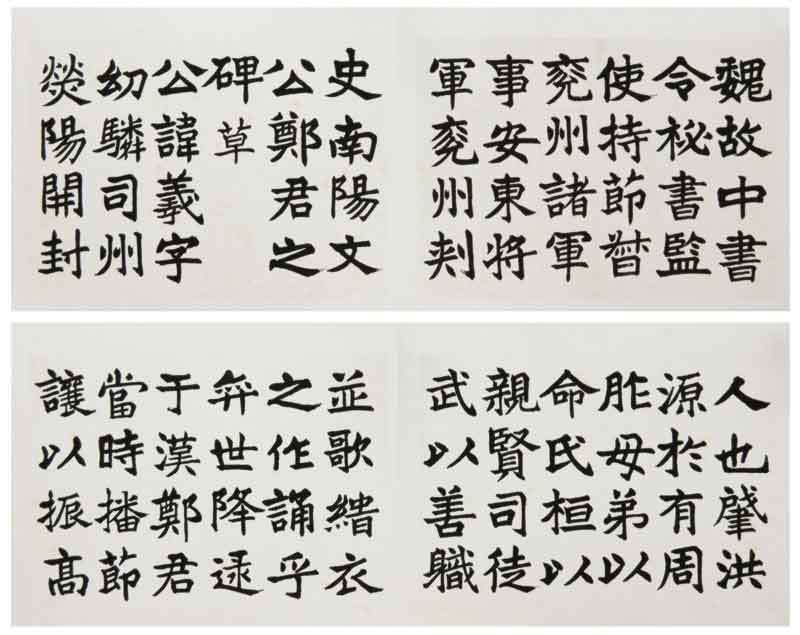 魏故中書
令秘書監
使持節督
兗州諸軍
事安東將
軍兗州刾
史南陽文
公鄭君之
碑草
公諱羲字
幼驎司州
熒陽開封
人也肇洪
源於有周
胙母弟以
命氏桓以
親賢司徒
武以善職
並歌緇衣
之作誦乎
弈世降逯
于漢鄭君
當時播節
讓以振高